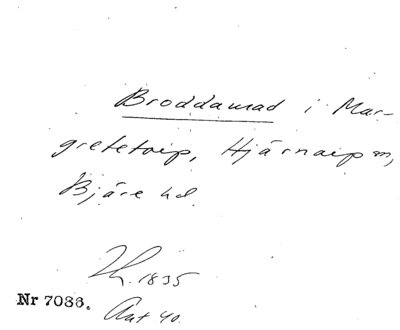 Broddamad i Mar-
gretetorp, Hjärnarp sn,
Bjäre hd.
Th. 1835
Nr 7086.
Ant 40.